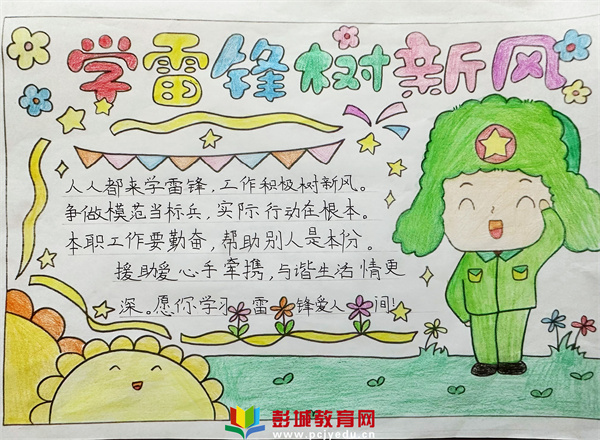 学雷锋树新风
人人都来学雷锋，工作积极树新风。
争做模范当标兵，实际行动在根本。
本职工作要勤奋，帮助别人是本份。
援助爱心手牵携，与谐生活情更
深。愿你学习雷锋爱人间！
彭城教育网
www.pcjyedu.cn